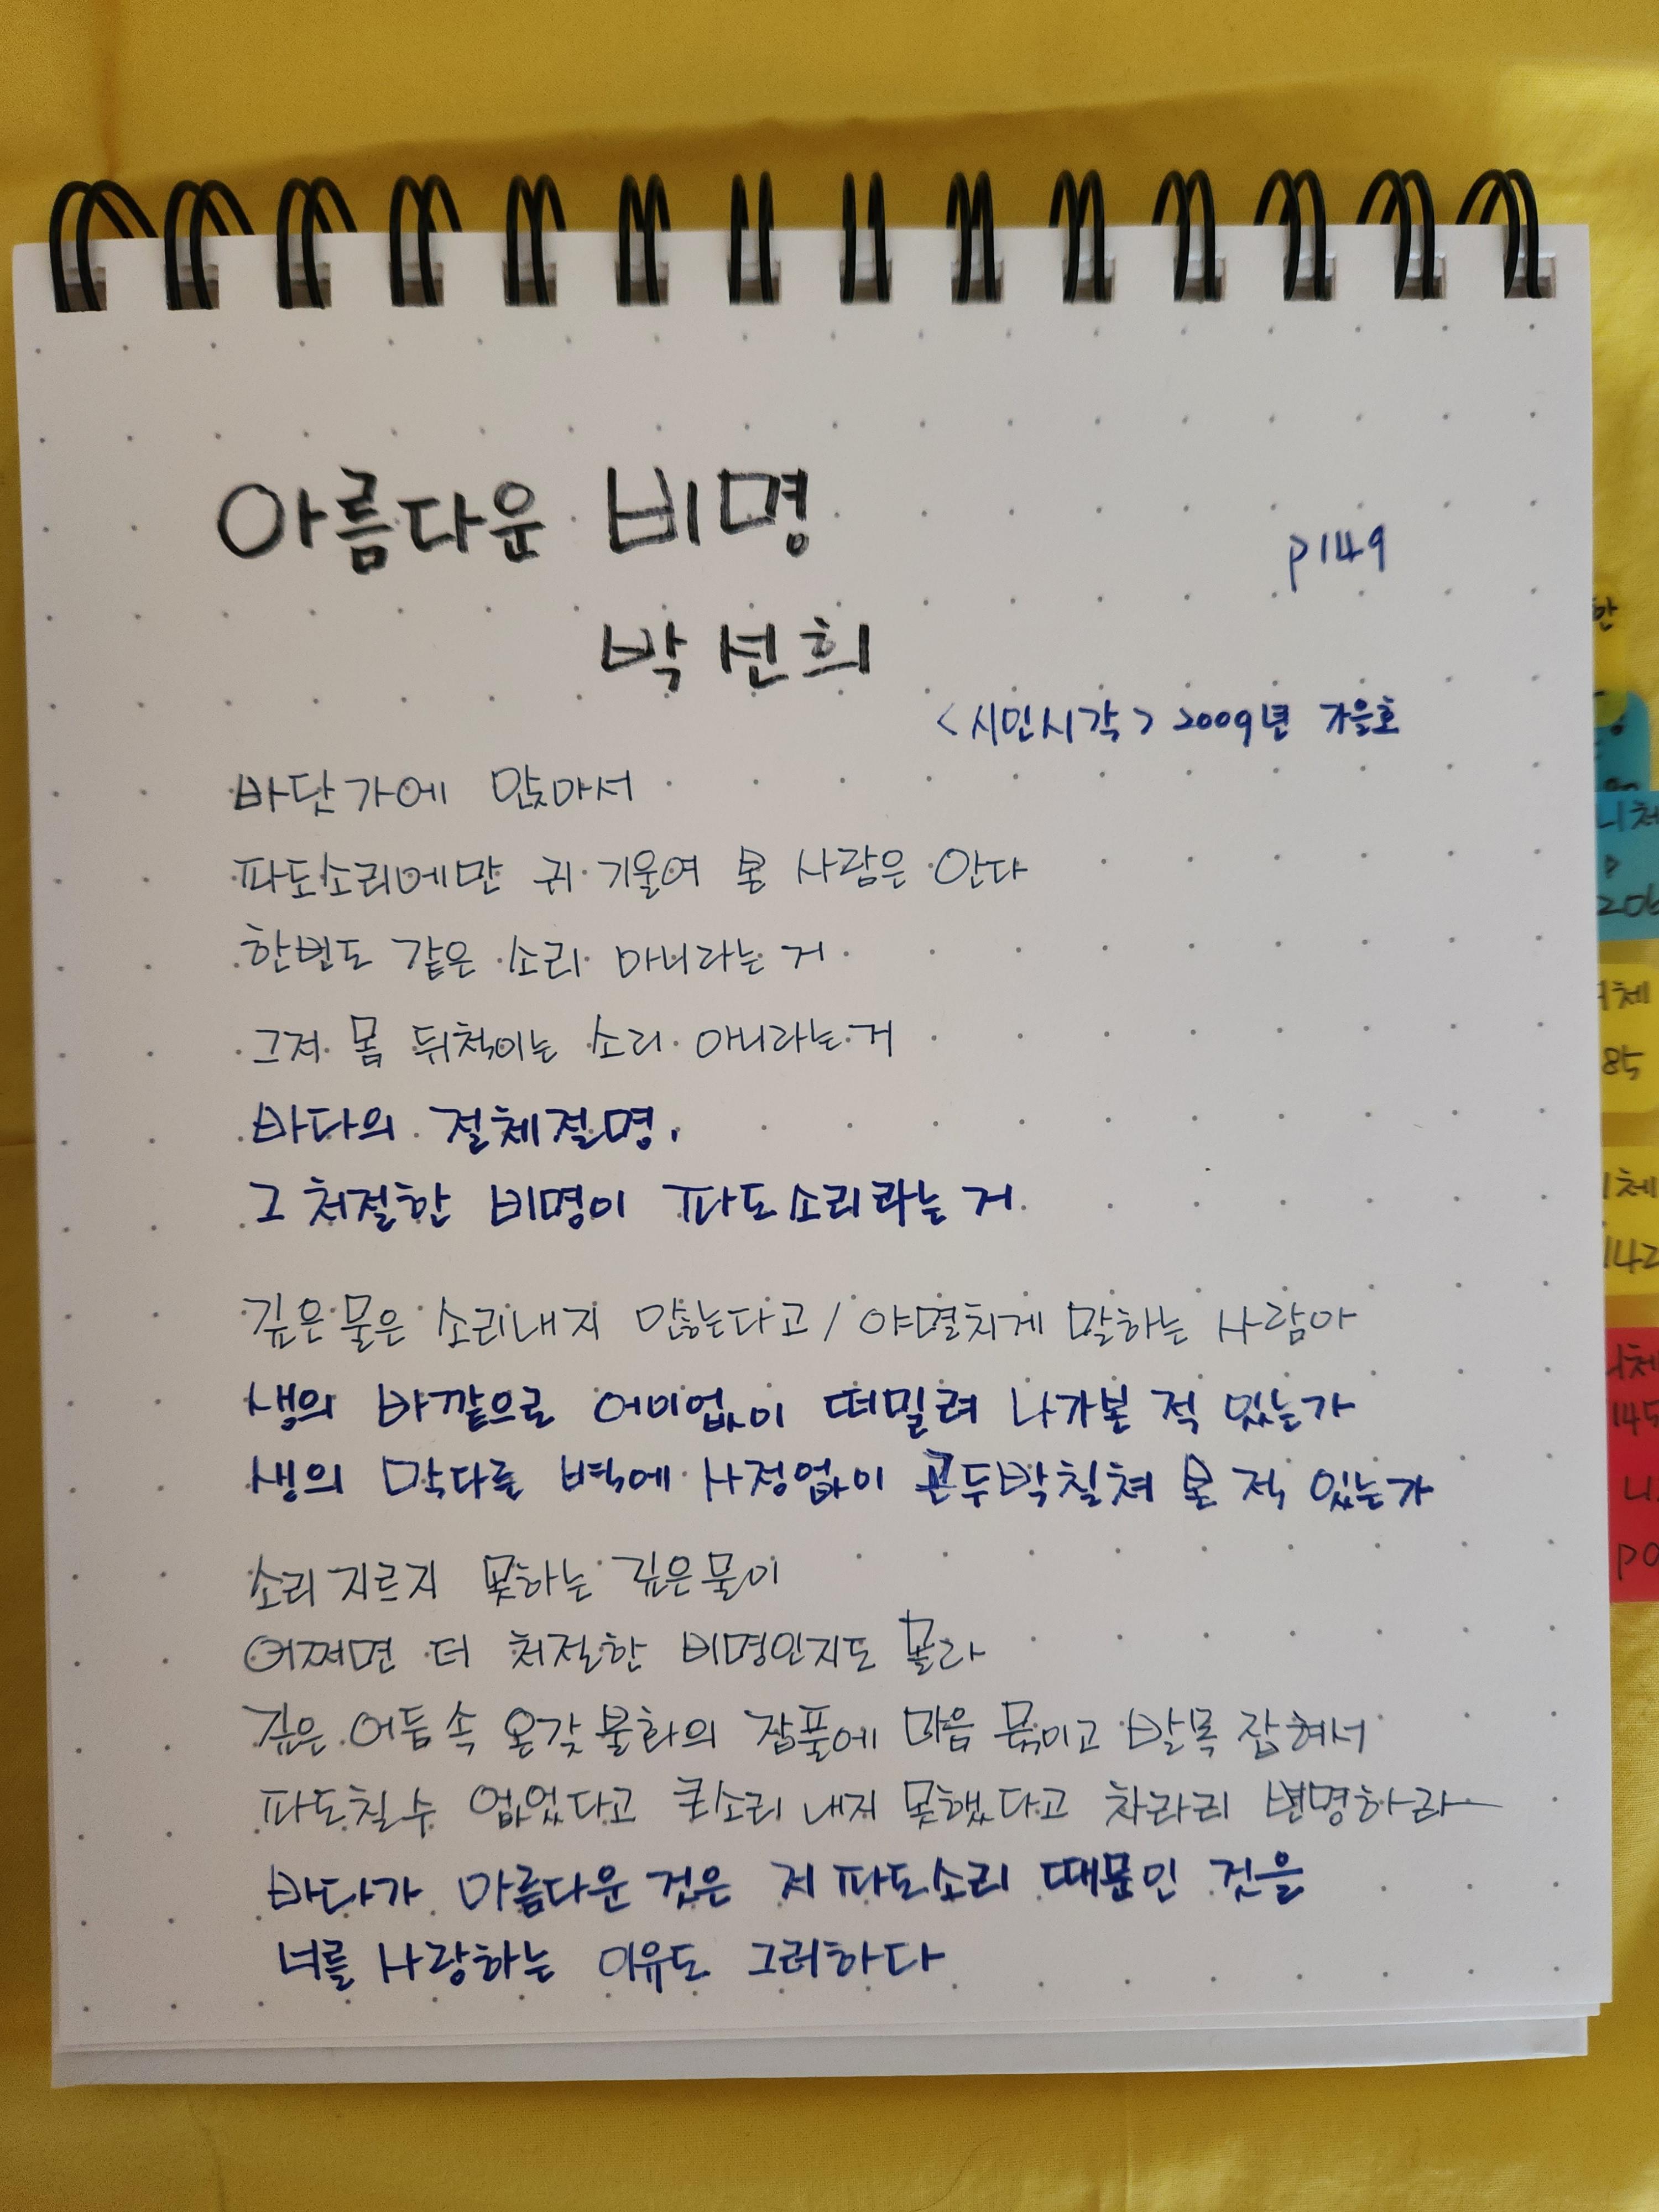 아름다운 비명
p149
박선희
<시인시각> 2009년 가을호
바닷가에 앉아서
파도소리에만 귀 기울여 본 사람은 안다
한번도 같은 소리 아니라는 거
그저 몸 뒤척이는 소리 아니라는 거
바다의 절체절명,
그 처절한 비명이 파도소리라는 거
깊은 물은 소리내지 않는다고 / 야멸치게 말하는 사람아
생의 바깥으로 어이없이 떠밀려 나가본 적 있는가
생의 막다른 벽에 사정없이 곤두박질쳐 본 적 있는가
소리 지르지 못하는 깊은 물이
어쩌면 더 처절한 비명인지도 몰라
깊은 어둠 속 온갖 불화의 잡풀에 마음 묶이고 발목 잡혀서
파도칠 수 없었다고 큰소리 내지 못했다고 차라리 변명하라
바다가 아름다운 것은 저 파도소리 때문인 것을
너를 사랑하는 이유도 그러하다
한
니체
p
206
니체
85
니체
142
니체
145